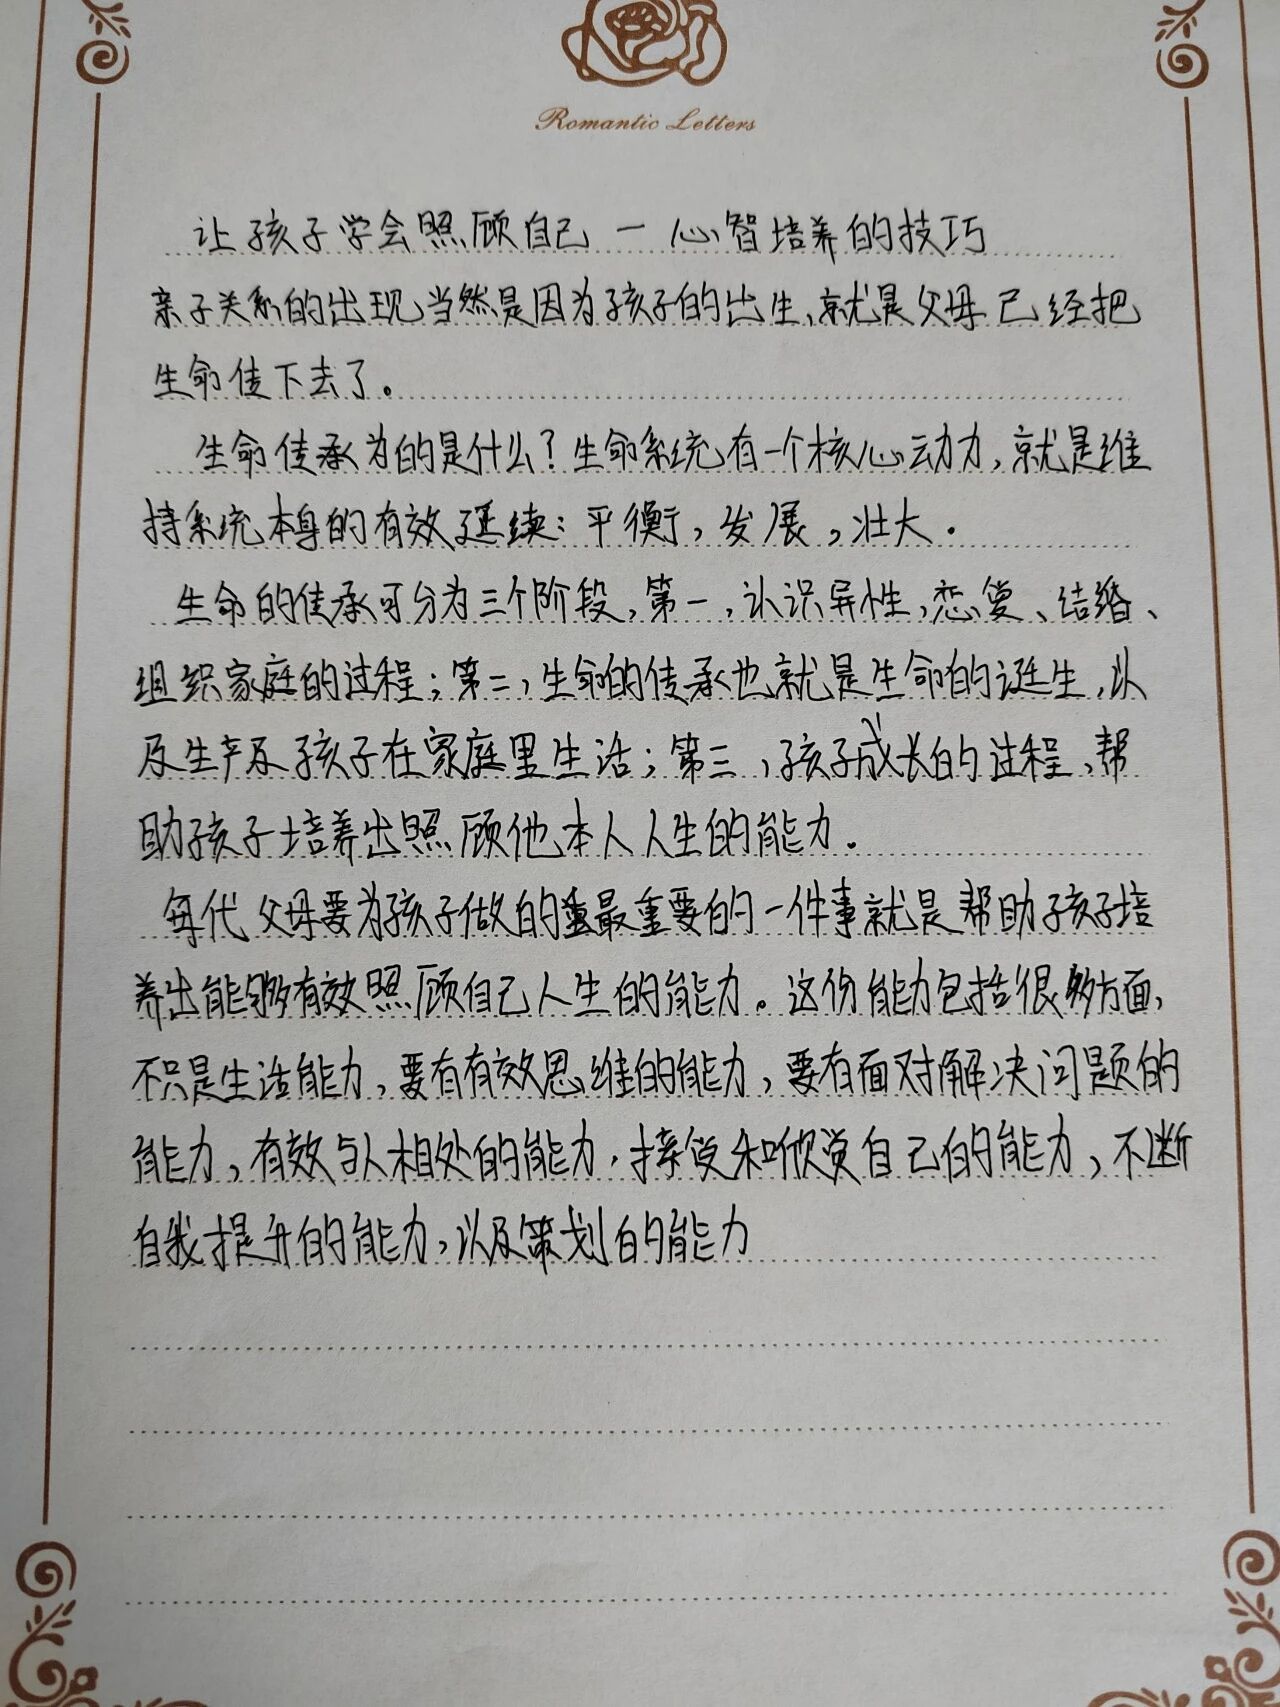 Romantic Letters
让孩子学会照顾自己 一 心智培养的技巧
亲子关系的出现当然是因为孩子的出生,就是父母已经把
生命传下去了。
生命传承为的是什么?生命系统有一个核心动力,就是维
持系统本身的有效延续:平衡,发展,壮大.
生命的传承可分为三个阶段,第一,认识异性,恋爱、结婚、
组织家庭的过程;第二,生命的传承也就是生命的诞生,以
及生产及孩子在家庭里生活;第三,孩子成长的过程,帮
助孩子培养出照顾他本人人生的能力.
每代父母要为孩子做的最重要的一件事就是帮助孩子培
养出能够有效照顾自己人生的能力。这份能力包括很多方面,
不只是生活能力,要有有效思维的能力,要有面对解决问题的
能力,有效与人相处的能力,接受和欣赏自己的能力,不断
自我提升的能力,以及策划的能力